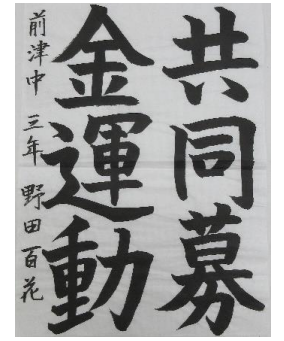 共同募
金運動
前津中 三年 野田百花